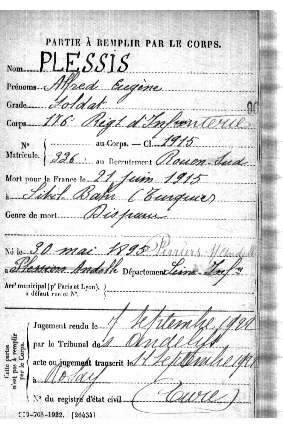 PARTIE À REMPLIR PAR LE CORPS.
Nom PLESSIS
Prénoms Alfred Eugène
Grade Soldat
Corps 176 Régt d'Infanterie
N° Matricule. au Corps. — Cl. 1915
326 au Recrutement Rouen Sud
Mort pour la France le 21 juin 1915
à Sibil Bahr (Turquie)
Genre de mort Disparu
Né le 30 mai 1895
Département Seine Infre
Arrt municipal (pr Paris et Lyon),
à défaut rue et N°.
Cette partie n'est pas à remplir par le Corps.
Jugement rendu le 7 Septembre 1920
par le Tribunal de Andelys
acte ou jugement transcrit le Septembre
à
N° du registre d'état civil (Eure)